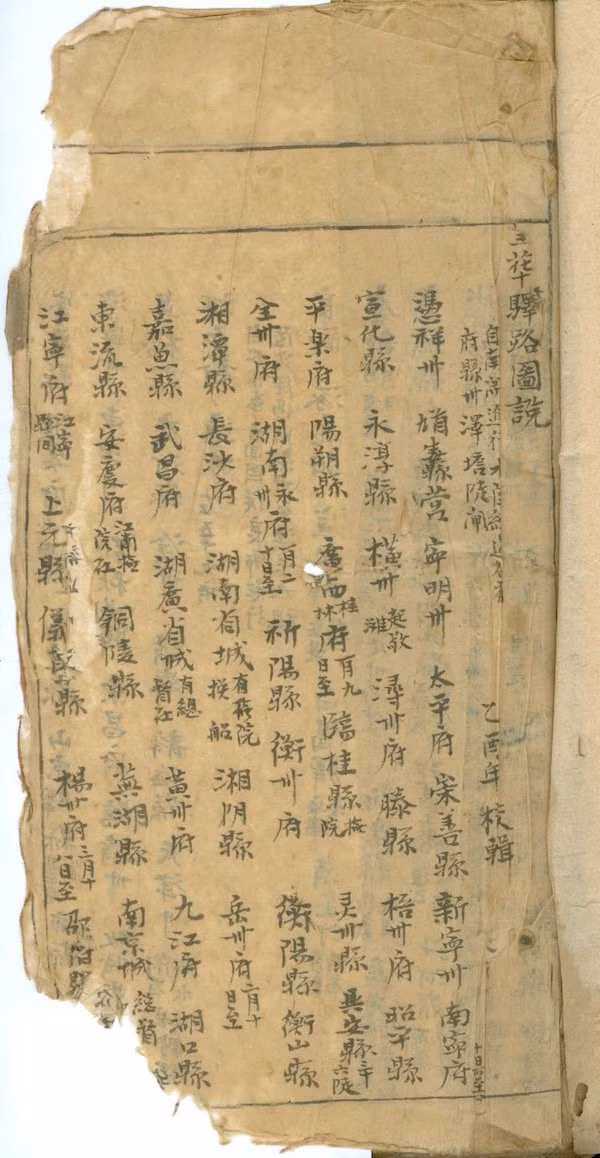 華驛路圖說
自南寧進行水
府縣州澤塘陡閘
乙酉年 校輯
憑祥州 蠹營 寧明州 太平府 崇善縣 新寧州 南寧府
宣化縣 永淳縣 橫州 起敬灘 潯州府 滕縣 梧州府 昭平縣
平樂府 陽朔縣 桂林府 日至 臨桂縣 院 灵川縣 興安縣 六陡
全州府 湖南永州府 一月二十日至 祈陽縣 衡州府 衡陽縣 衡山縣
湘潭縣 長沙府 湖南省城 有撫院 換船 湘阴縣 岳州府 二月十日至
嘉魚縣 武昌府 湖廣省城 有總督 黃州府 九江府 湖口縣
東流縣 安慶府 銅陵縣 蕪湖縣 南京城 總督
江寧府 江寧 上元縣 儀縣 楊州府 三月十日至 邵伯